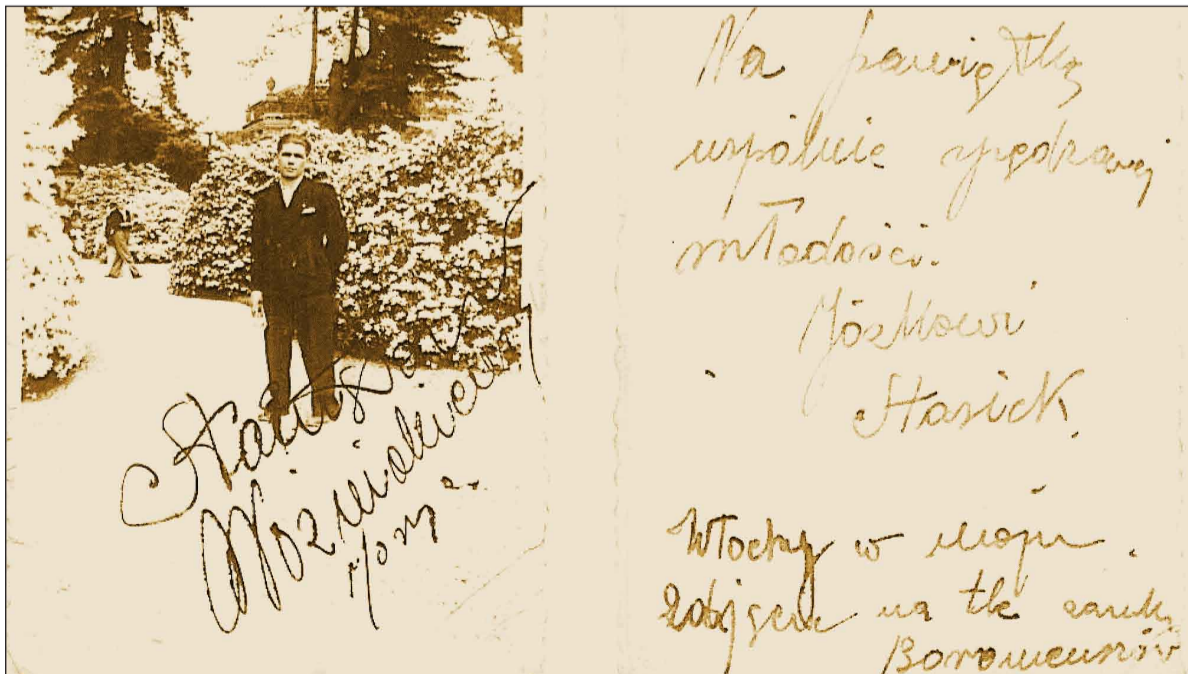 Stanisław
Woźniakiewicz
Na pamiątkę
wspólnie spędzonej
młodości.
Józkowi
Stasiek.
Włochy w maju.
Zdjęcie na tle zamku
Boromeuszów